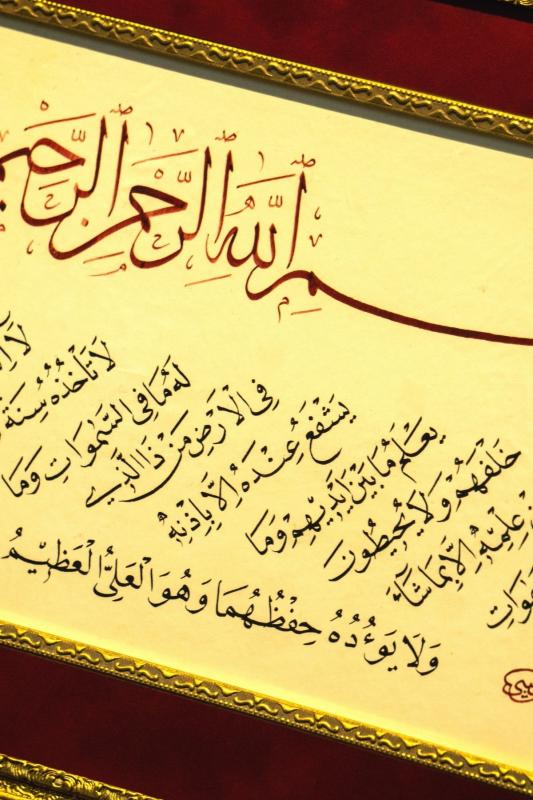 سم الله الرحمن الرحيم
لَا تَأْخُذُهُ سِنَةٌ
لَهُ مَا فِي السَّمٰوَاتِ وَمَا
فِي الْاَرْضِ مَنْ ذَا الَّذِي
يَشْفَعُ عِنْدَهُ اِلَّا بِاِذْنِهِ
يَعْلَمُ مَا بَيْنَ اَيْدِيهِمْ وَمَا
خَلْفَهُمْ وَلَا يُحِيطُونَ
عِلْمِهِ اِلَّا بِمَا شَاءَ
وَلَا يَؤُدُهُ حِفْظُهُمَا وَهُوَ الْعَلِيُّ الْعَظِيمُ